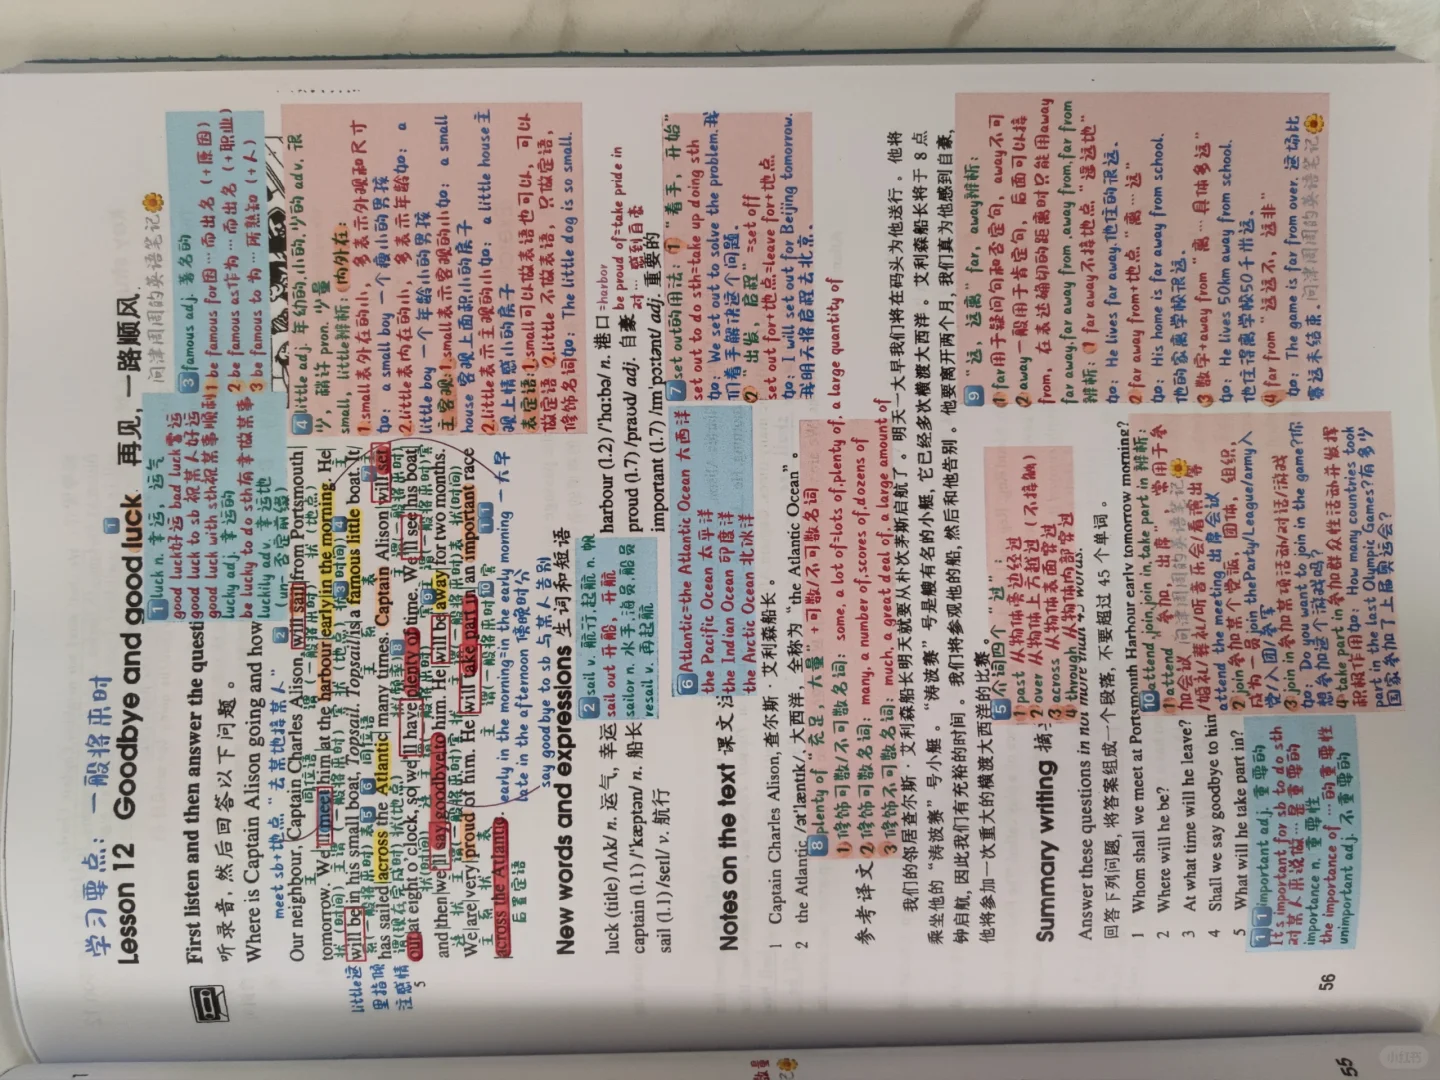 学习要点：一般将来时
Lesson 12 Goodbye and good luck 再见，一路顺风
问津周周的英语笔记
First listen and then answer the questi
听录音，然后回答以下问题。
Where is Captain Alison going and how
meet sb+地点 “去某地接某人”
Our neighbour, Captain Charles Alison, will sail from Portsmouth
tomorrow. We'll meet him at the harbour early in the morning. He
will be in his small boat, Topsail. Topsail is a famous little boat. It
has sailed across the Atlantic many times. Captain Alison will set
out at eight o'clock, so we'll have plenty of time. We'll see his boat
and then we'll say goodbye to him. He will be away for two months.
We are very proud of him. He will take part in an important race
across the Atlantic.
后置定语
little这
里指倾
注感情
5
early in the morning=in the early morning 一大早
late in the afternoon 傍晚时分
say goodbye to sb 与某人告别
1 luck n. 幸运，运气
good luck好运 bad luck霉运
good luck to sb 祝某人好运
good luck with sth祝某事顺利
lucky adj. 幸运的
be lucky to do sth有幸做某事
luckily adv. 幸运地
(un- 否定前缀)
3 famous adj. 著名的
1 be famous for因…而出名 (+原因)
2 be famous as作为…而出名 (+职业)
3 be famous to 为…所熟知 (+人)
4 little adj. 年幼的,小的,少的 adv. 很
少，稍许 pron. 少量
small, little辨析: 内外在:
1.small表外在的小，多表示外观和尺寸
如: a small boy 一个瘦小的男孩
2.little表内在的小，多表示年龄如: a
little boy 一个年龄小的男孩
主客观:1.small表示客观的小如: a small
house 客观上面积小的房子
2.little表示主观的小如: a little house 主
观上情感小的房子
表定语:1.small可以做表语也可以, 可以
做定语 2.little 不做表语，只做定语，
修饰名词如: The little dog is so small.
New words and expressions 生词和短语
luck (title) /lʌk/ n. 运气，幸运
captain (l.1) /'kæptən/ n. 船长
sail (l.1) /seɪl/ v. 航行
2 sail v. 航行,起航 n. 帆
sail out 开船，起航
sailor n. 水手,海员,船员
resail v. 再起航
harbour (l.2) /'hɑːbə/ n. 港口 =harbor
proud (l.7) /praʊd/ adj. 自豪
be proud of=take pride in
对…感到自豪
important (l.7) /ɪm'pɔːtənt/ adj. 重要的
Notes on the text 课文注
1 Captain Charles Alison, 查尔斯·艾利森船长。
2 the Atlantic /ət'læntɪk/, 大西洋, 全称为 “the Atlantic Ocean”。
6 Atlantic=the Atlantic Ocean 大西洋
the Pacific Ocean 太平洋
the Indian Ocean 印度洋
the Arctic Ocean 北冰洋
7 set out的用法: 1 “着手，开始”
set out to do sth=take up doing sth
如: We set out to solve the problem. 我
们着手解决这个问题。
2 “出发，启程” =set off
set out for+地点=leave for+地点
如: I will set out for Beijing tomorrow.
我明天将启程去北京。
8 plenty of “充足，大量” +可数/不可数名词
1 修饰可数/不可数名词: some, a lot of=lots of,plenty of, a large quantity of
2 修饰可数名词: many, a number of,scores of,dozens of
3 修饰不可数名词: much, a great deal of, a large amount of
参考译文
我们的邻居查尔斯·艾利森船长明天就要从朴次茅斯启航了。明天一大早我们将在码头为他送行。他将
乘坐他的“涛波赛”号小艇。“涛波赛”号是艘有名的小艇，它已经多次横渡大西洋。艾利森船长将于 8 点
钟启航, 因此我们有充裕的时间。我们将参观他的船, 然后和他告别。他要离开两个月, 我们真为他感到自豪,
他将参加一次重大的横渡大西洋的比赛。
5 介词四个“过”:
1 past 从物体旁边经过
2 over 从物体上方越过 (不接触)
3 across 从物体表面穿过
4 through 从物体内部穿过
9 “远，远离” far, away辨析:
1 far用于疑问句和否定句，away不可
2 away一般用于肯定句，后面可以接
from, 在表达确切的距离时只能用away
far away,far away from,away from,far from
辨析: 1 far away不接地点 “遥远地”
如: He lives far away.他住的很远。
2 far away from+地点 “离…远”
如: His home is far away from school.
他的家离学校很远。
3 数字+away from “离…具体多远”
如: He lives 50km away from school.
他住得离学校50千米远。
4 far from “远远不, 远非”
如: The game is far from over. 这场比
赛远未结束。问津周周的英语笔记
Summary writing 摘
Answer these questions in not more than 45 words.
回答下列问题, 将答案组成一个段落, 不要超过 45 个单词。
1 Whom shall we meet at Portsmouth Harbour early tomorrow morning?
2 Where will he be?
3 At what time will he leave?
4 Shall we say goodbye to him
5 What will he take part in?
10 attend,join,join in,take part in 辨析:
1 attend 参加，出席，常用于参
加会议/婚礼/葬礼/听音乐会/看演出等
attend the meeting 出席会议
2 join 参加某个党派，团体，组织，
成为一员 join the Party/League/army入
党/入团/参军
3 join in 参加某项活动/对话/游戏
如: Do you want to join in the game?你
想参加这个游戏吗?
4 take part in 参加群众性活动并发挥
积极作用如: How many countries took
part in the last Olympic Games?有多少
国家参加了上届奥运会?
11 important adj. 重要的
It's important for sb to do sth
对某人来说做…是重要的
importance n. 重要性
the importance of …的重要性
unimportant adj. 不重要的
56
55